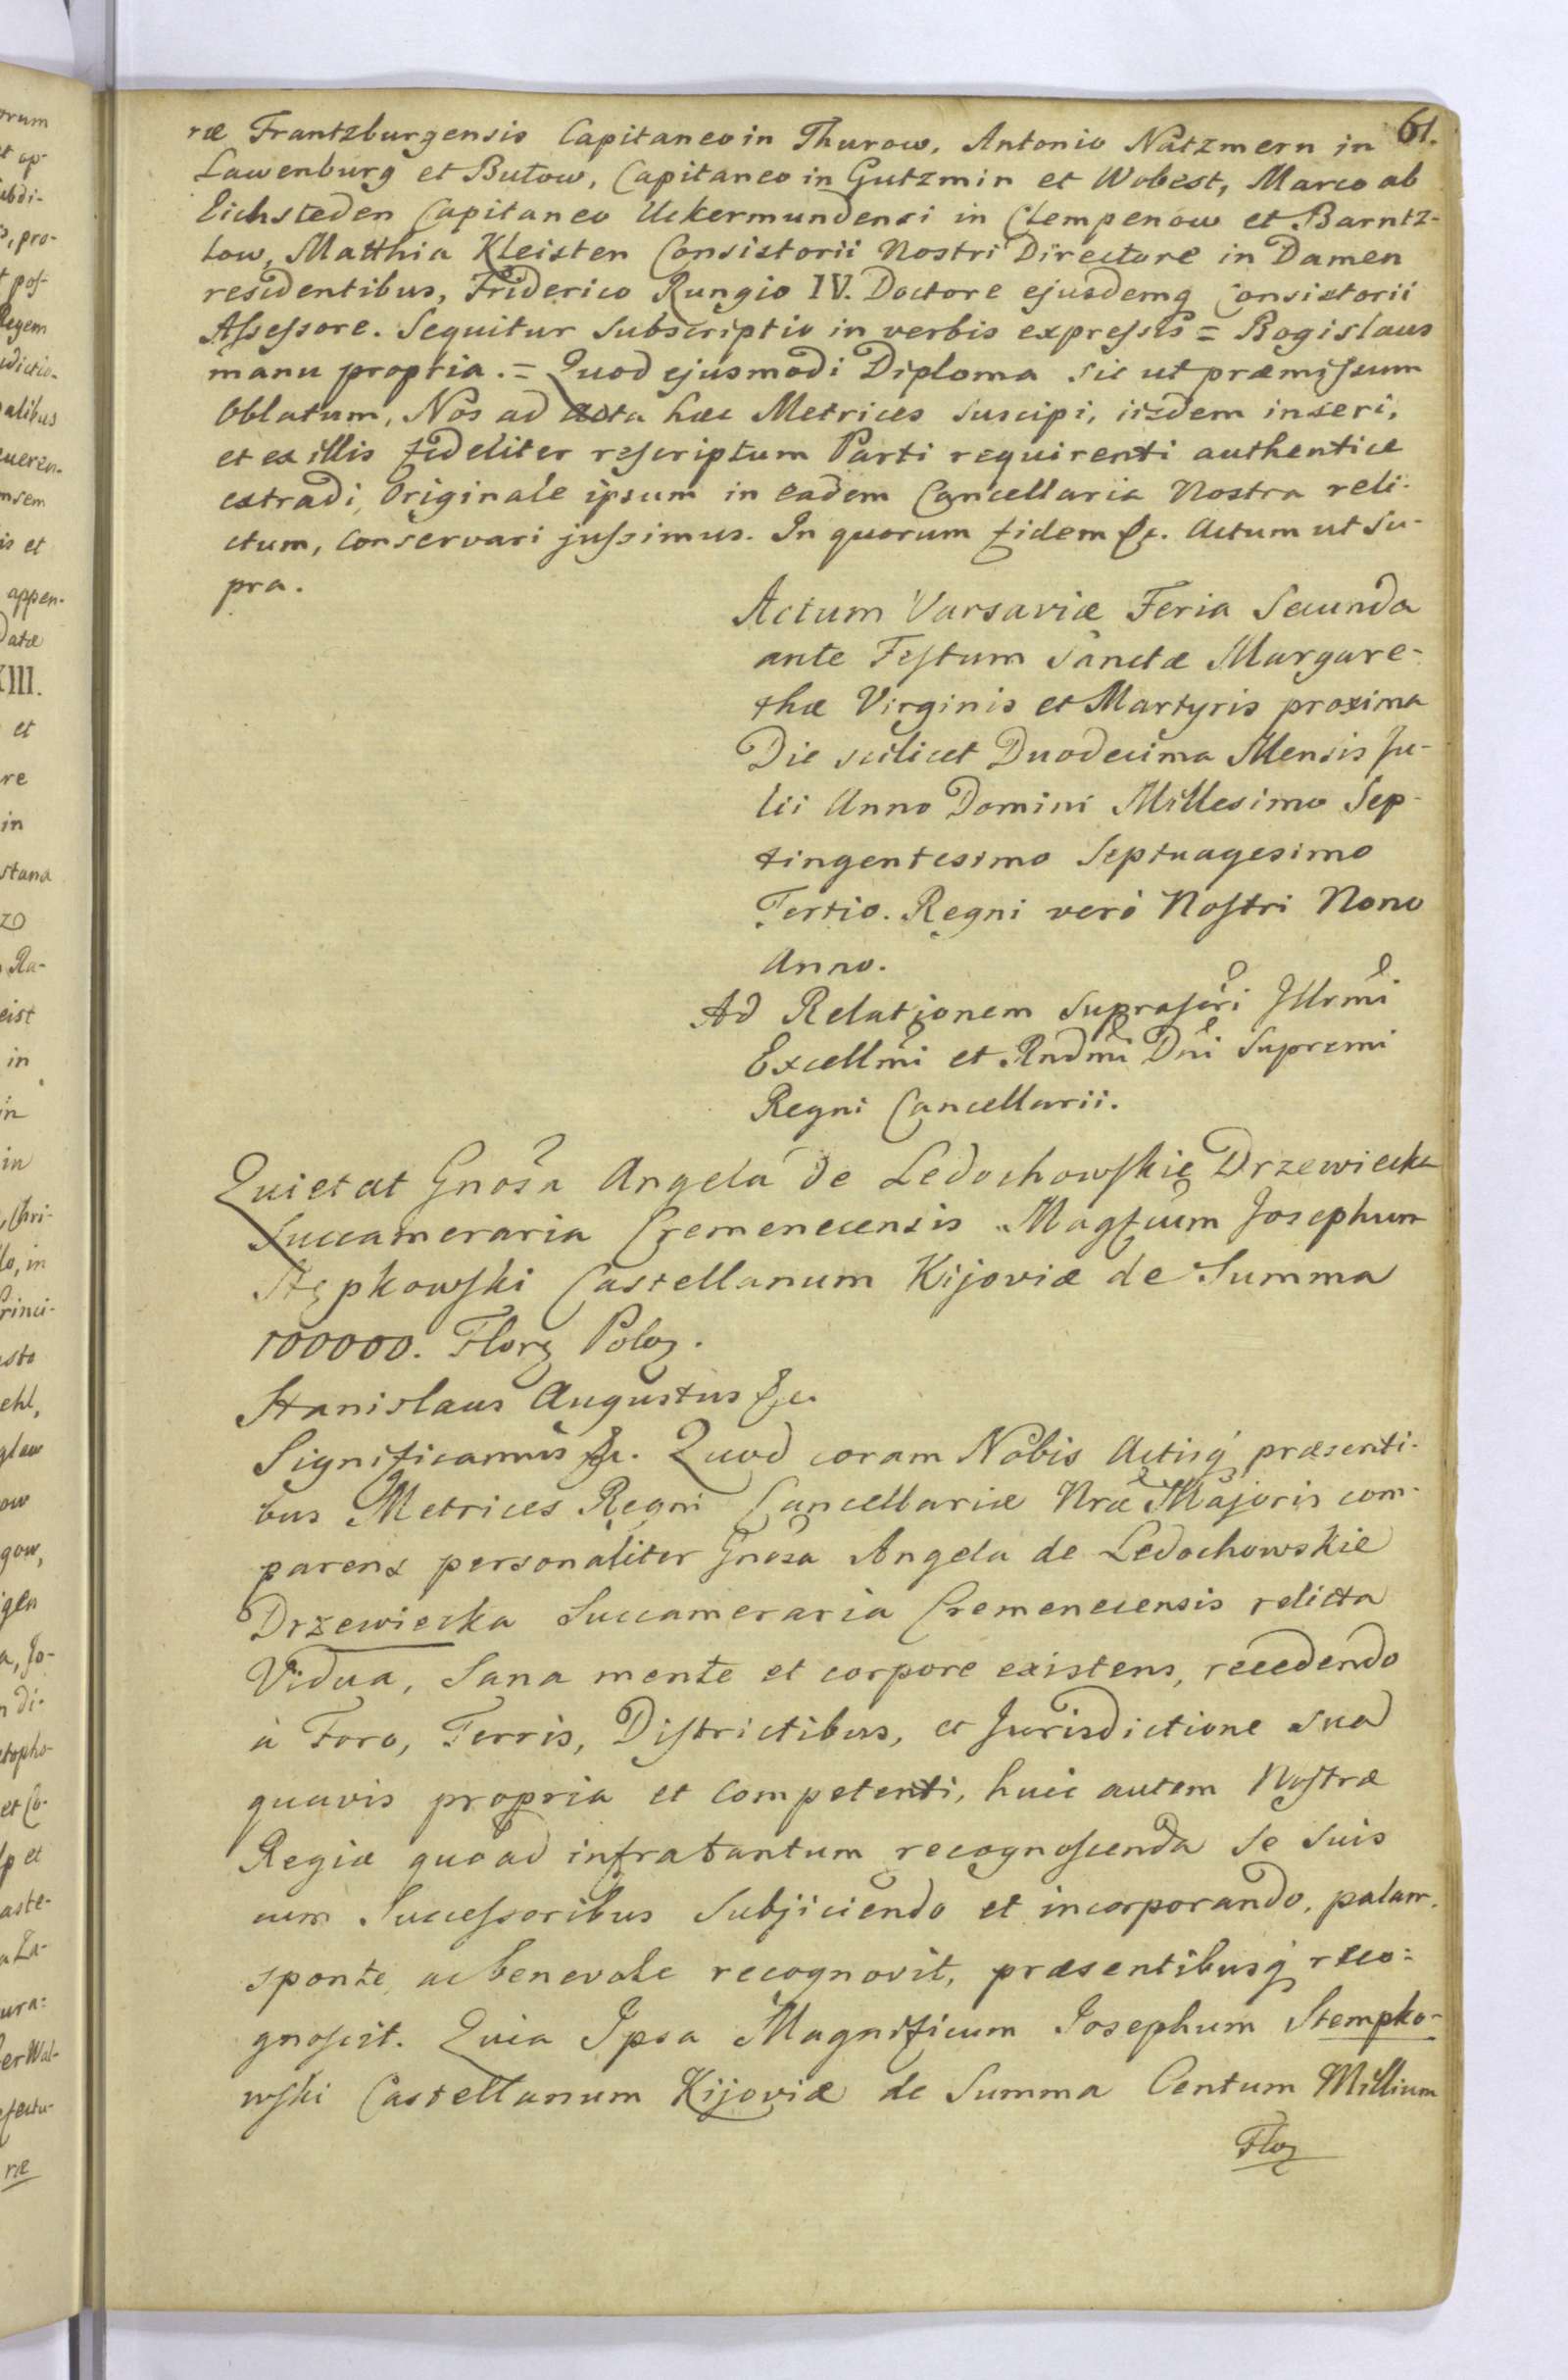 61.
ræ Frantzburgensis Capitaneo in Thurow, Antonio Natzmern in
Lawenburg et Butow, Capitaneo in Gutzmin et Wobest, Marco ab
Eichsteden Capitaneo Uckermundensi in Clempenow et Barntz-
low, Matthia Kleisten Consistorii Nostri Directore in Damen
residentibus, Friderico Rungio IV. Doctore ejusdemq Consistorii
Assessore. Sequitur Subscriptio in verbis expressis = Bogislaus
manu propria. = Quod ejusmodi Diploma sic ut præmissum
Oblatum, Nos ad acta hæc Metrices suscipi, iisdem inseri,
et ex illis fideliter rescriptum Parti requirenti authentice
extradi, Originale ipsum in eadem Cancellaria Nostra reli-
ctum, conservari jussimus. In quorum fidem &c. Actum ut Su-
pra.
Actum Varsaviæ Feria Secunda
ante Festum Sanctæ Margare-
thæ Virginis et Martyris proxima
Die scilicet Duodecima Mensis Ju-
lii Anno Domini Millesimo Sep-
tingentesimo Septuagesimo
Tertio. Regni verò Nostri Nono
Anno.
Ad Relationem suprascri Illrmi
Excellmi et Rndmi Dni Supremi
Regni Cancellarii.
Quietat Gnosa Angela de Ledochowskie Drzewiecka
Succameraria Cremenecensis Magfcum Josephum
Stępkowski Castellanum Kijoviæ de Summa
100000. Florꝫ Poloꝫ.
Stanislaus Augustus &c.
Significamus &c. Quod coram Nobis Actisq præsenti-
bus Metrices Regni Cancellariæ Nræ Majoris com-
parens personaliter Gnosa Angela de Ledochowskie
Drzewiecka Succameraria Cremenecensis relicta
Vidua, Sana mente et corpore existens, recedendo
à Foro, Terris, Districtibus, et Jurisdictione sua
quavis propria et competenti, huic autem Nostræ
Regiæ quoad infratantum recognoscenda se suis
cum Successoribus subjiciendo et incorporando, palam,
sponte, ac benevole recognovit, præsentibusq reco-
gnoscit. Quia Ipsa Magnificum Josephum Stempko-
wski Castellanum Kijoviæ de Summa Centum Millium
Floꝫ